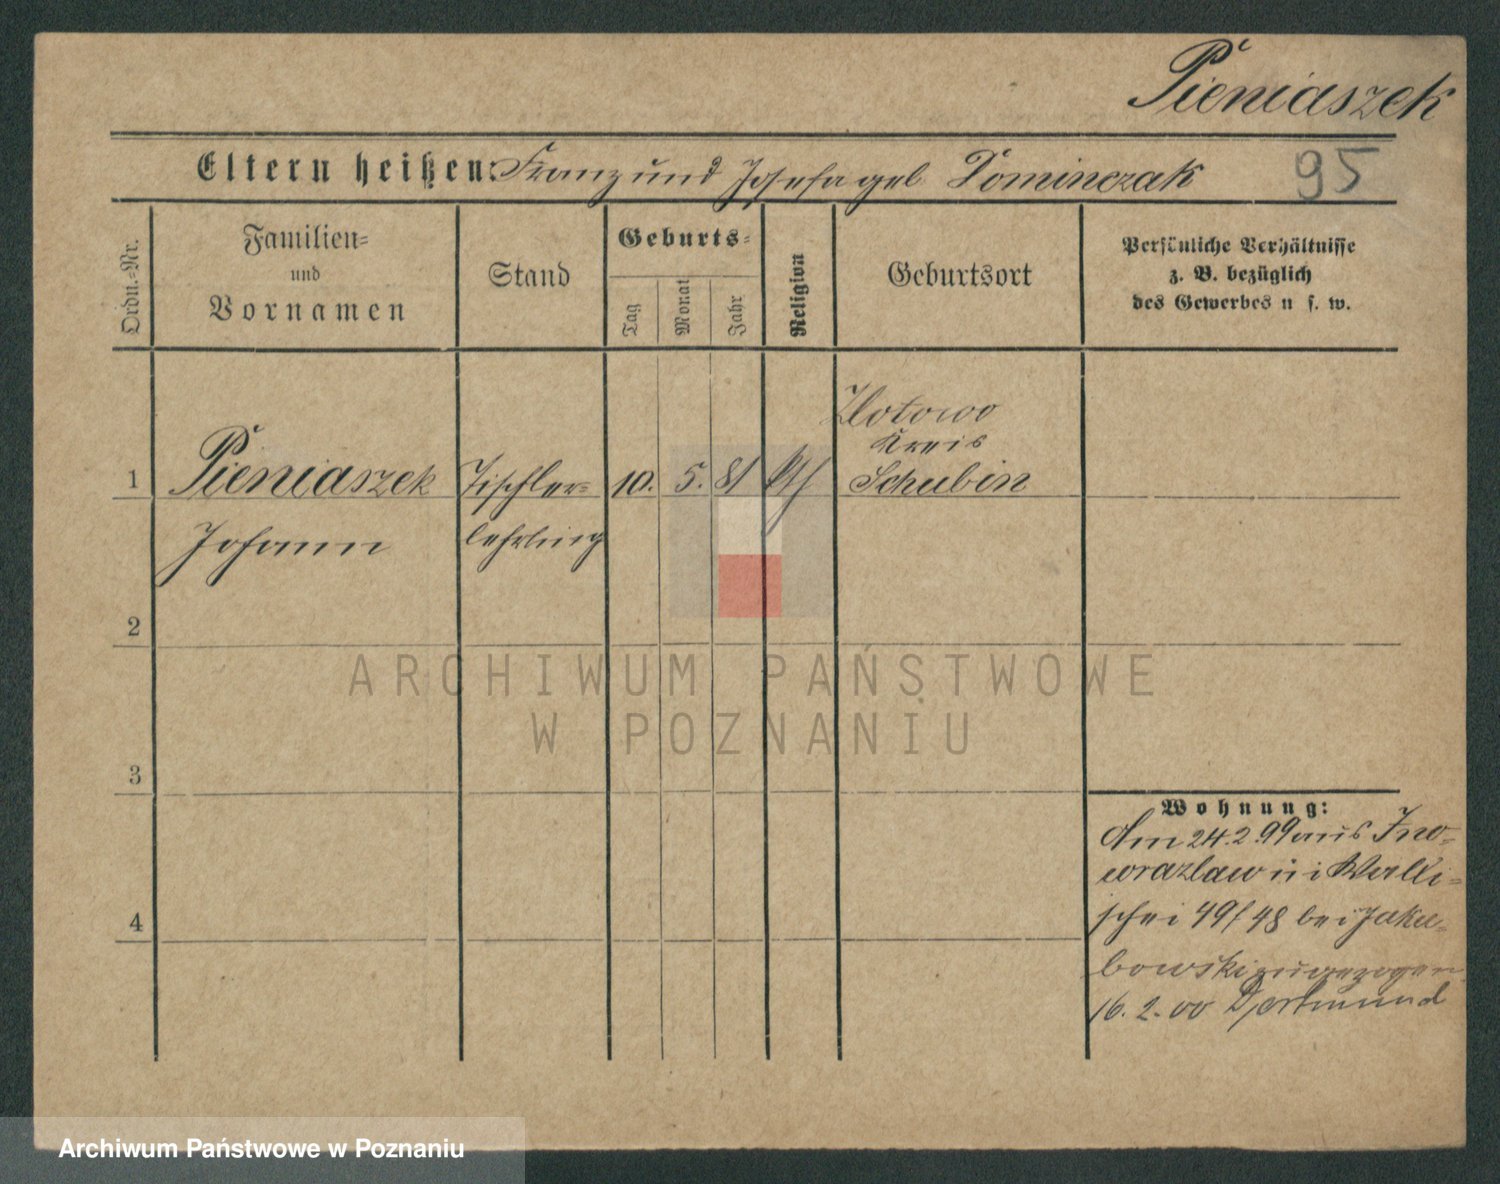 Pieniaszek
Eltern heißen: Franz und Josefa geb Dominczak
95
Ordn.-Nr.
Familien-
und
Vornamen
Stand
Geburts-
Tag
Monat
Jahr
Religion
Geburtsort
Persönliche Verhältnisse
z. B. bezüglich
des Gewerbes u s. w.
Zlotowo
Kreis
1 Pieniaszek Tischler- 10. 5. 81 kth Schubin
Johann lehrling
2
ARCHIWUM PAŃSTWOWE
W POZNANIU
3
Wohnung:
Am 24.2.99 aus Ino-
wrazlaw in Walli-
schei 49/48 bei Jaku-
4
bowski zugezogen
16.2.00 Dortmund
Archiwum Państwowe w Poznaniu